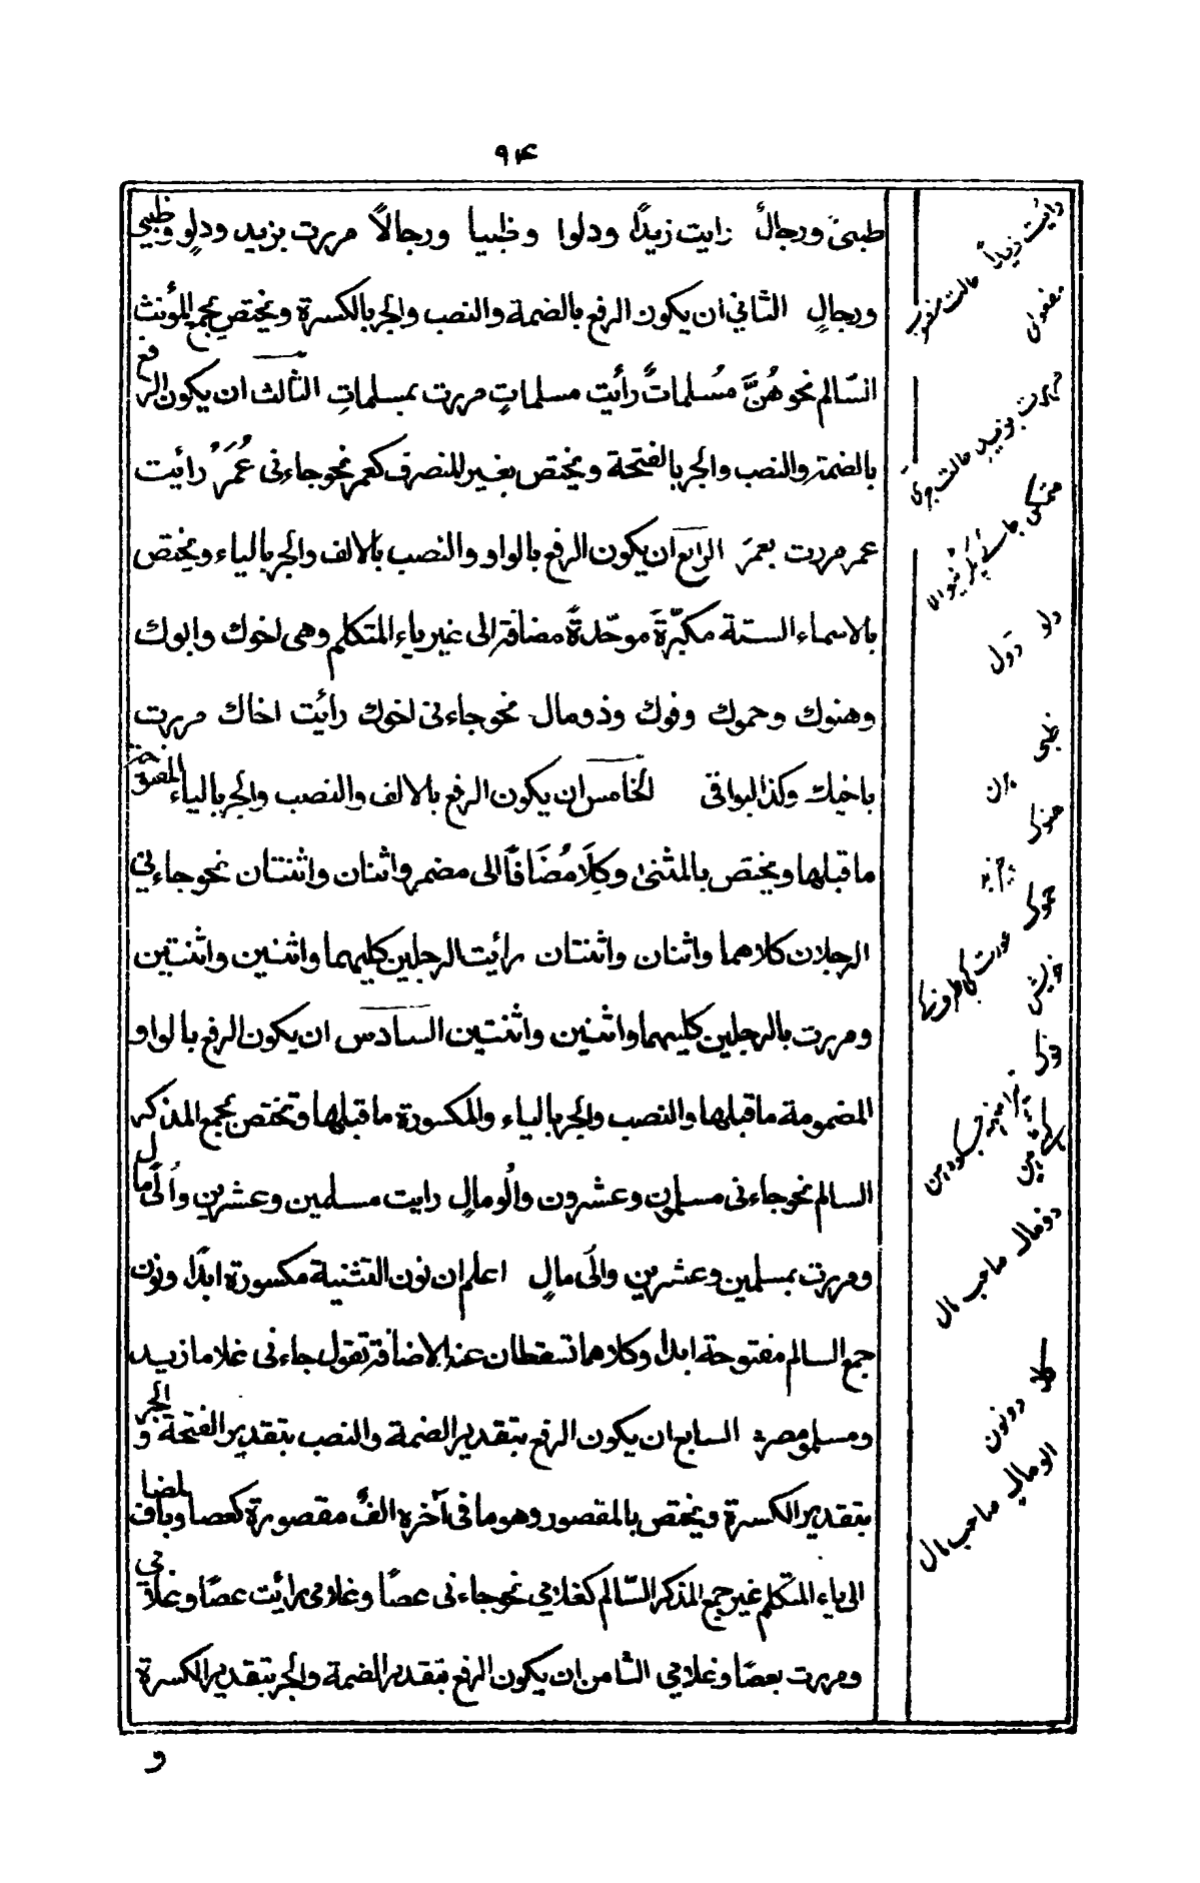 ۹۴
ظبیٌ ورجالٌ رایت زیدًا ودلوا وظبیا ورجالًا مررت بزید ودلوٍ وظبیٍ
ورجالٍ الثاني ان یکون الرفع بالضمة والنصب والجر بالکسرة ویختص بجمع المؤنث
السّالم نحو هُنَّ مُسلماتٌ رأیت مسلماتٍ مررت بمسلماتٍ الثالث ان یکون الرفع
بالضمة والنصب والجر بالفتحة ویختص بغیر المنصرف کعمر نحو جاءنی عُمَرُ رائیت
عمر مررت بعمرَ الرابع ان یکون الرفع بالواو والنصب بالالف والجر بالیاء ویختص
بالاسماء الستة مکبّرةً موحّدةً مضافة الی غیر یاء المتکلم وهی اخوك وابوك
وهنوك وحموك وفوك وذومال نحو جاءنی اخوك رائیت اخاك مررت
باخیك وکذا البواقی الخامس ان یکون الرفع بالالف والنصب والجر بالیاء المفتوح
ماقبلها ویختص بالمثنیٰ وکِلَا مُضَافًا الی مضمر واثنان واثنتان نحو جاءنی
الرجلان کلاهما واثنان واثنتان رأیت الرجلین کلیهما واثنین واثنتین
ومررت بالرجلین کلیهما واثنین واثنتین السادس ان یکون الرفع بالواو
المضمومة ماقبلها والنصب والجر بالیاء والمکسورة ماقبلها وتختص بجمع المذکر
السالم نحو جاءنی مسلمون وعشرون واُلومالٍ رایت مسلمین وعشرین واُلی مال
ومررت بمسلمین وعشرین واُلی مالٍ اعلم ان نون التثنیة مکسورة ابدًا ونون
جمع السالم مفتوحة ابدا وکلاهما تسقطان عند الاضافة تقول جاءنی غلاما زید
ومسلمو مصر السابع ان یکون الرفع بتقدیر الضمة والنصب بتقدیر الفتحة و الجر
بتقدیر الکسرة ویختص بالمقصور وهو ما فی آخره الفٌ مقصورة کعصا وبالمضاف
الی یاء المتکلم غیر جمع المذکر السّالم کغلامي نحو جاءنی عصًا وغلامی رائیت عصًا وغلامي
ومررت بعصًا وغلامي الثامن ان یکون الرفع بتقدیر الضمة والجر بتقدیر الکسرة
و
رایت زیداً حالت
مررت بزید حالت جری
دلو
ظبی
هنوک
حموک
فوک
ذومال صاحب مال
کلا
الومال صاحب مال